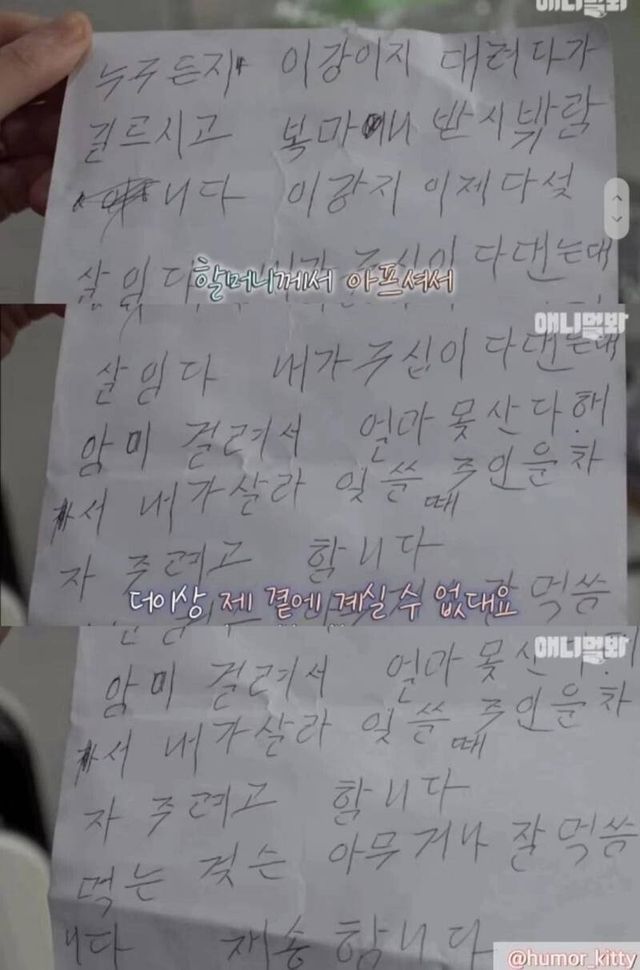 애니멀봐
누구든지 이강이지 대려다가
길르시고 복마이니 반시밖랍
니다 이강지 이제다섯
살임다 내가 주십이 다댄는대
할머니께서 아프셔서
애니멀봐
살임다 내가 주십이 다댄는대
암미 걸려서 얼마 못산다해
서 내가살라 잇쓸때 주인을 차
자 주려고 함니다
더이상 제 곁에 계실 수 없대요
잘먹씀
애니멀봐
암미 걸려서 얼마 못산다해
서 내가살라 잇쓸때 주인을 차
자 주려고 함니다
먹는 것슨 아무거나 잘먹씀
니다 재송함니다
@humor_kitty